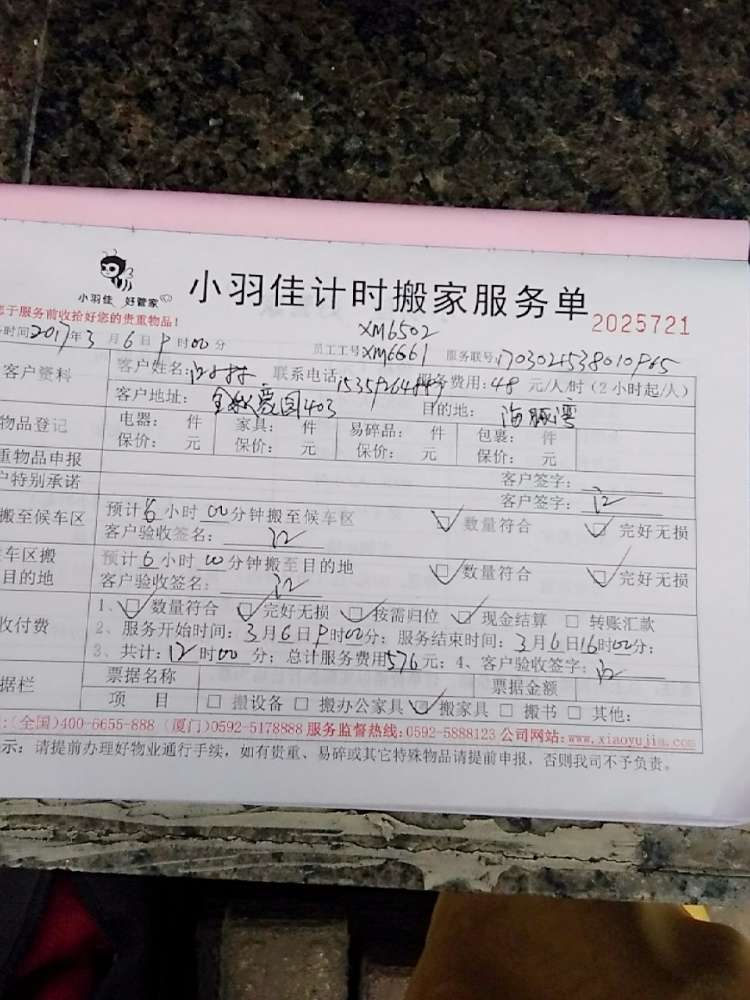 小羽佳 好管家
小羽佳计时搬家服务单 2025721
于服务前收拾好您的贵重物品!
时间2017年3月6日 时00分
员工工号 XM6502 XM6661 服务联号:
客户资料
客户姓名: 联系电话 服务费用:48元/人/时(2小时起/人)
客户地址: 403 目的地: 海豚湾
物品登记
电器: 件 家具: 件 易碎品: 件 包裹: 件
保价: 元 保价: 元 保价: 元 保价: 元
重物品申报 客户签字:
户特别承诺 客户签字:
搬至候车区
预计6小时00分钟搬至候车区 数量符合 完好无损
客户验收签名:
车区搬
目的地
预计6小时00分钟搬至目的地 数量符合 完好无损
客户验收签名:
收付费
1、数量符合 完好无损 按需归位 现金结算 转账汇款
2、服务开始时间:3月6日 时00分;服务结束时间:3月6日16时00分;
3、共计:12时00分;总计服务费用576元;4、客户验收签字:
据栏
票据名称 票据金额
项 目 搬设备 搬办公家具 搬家具 搬书 其他:
:(全国)400-6655-888 (厦门)0592-5178888 服务监督热线:0592-5888123 公司网站:www.xiaoyujia.com
示:请提前办理好物业通行手续,如有贵重、易碎或其它特殊物品请提前申报,否则我司不予负责。